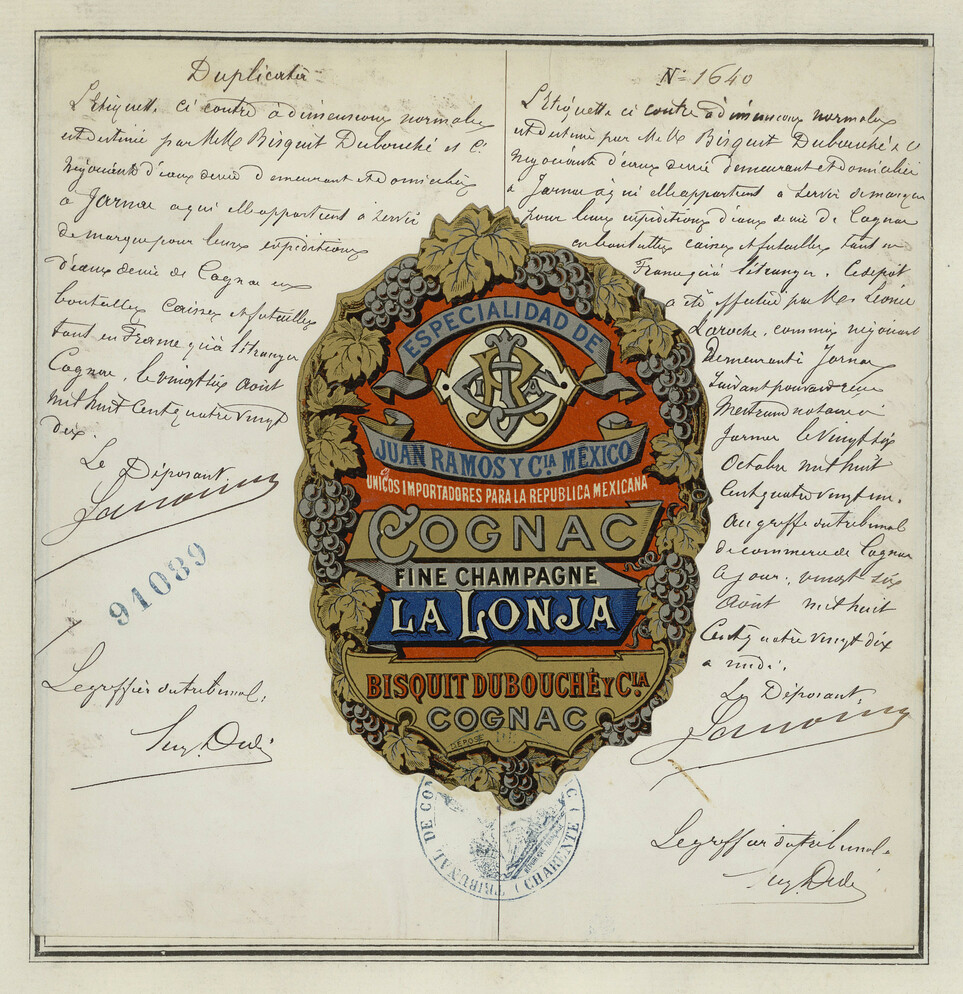 Duplicata
L'Etiquette ci contre à dimensions normales
est destinée par MM. Bisquit Dubouché et Cie
négociants d'eaux de vie demeurant et domiciliés
à Jarnac à qui elle appartient à servir
de marque pour leurs expéditions
d'eaux de vie de Cognac en
bouteilles, caisses et futailles
tant en France qu'à l'étranger
Cognac, le vingt six Août
mil huit cent quatre vingt
dix.
Le Déposant,
91089
Le greffier du tribunal,
No 1640
L'Etiquette ci contre à dimensions normales
est destinée par MM. Bisquit Dubouché & Cie
négociants d'eaux de vie demeurant et domiciliés
à Jarnac à qui elle appartient à servir de marque
pour leurs expéditions d'eaux de vie de Cognac
en bouteilles caisses et futailles tant en
France qu'à l'étranger. Ce dépôt
a été effectué par Mr Léonce
Laroche, commis négociant
demeurant à Jarnac
suivant pouvoir reçu
notaire à
Jarnac le vingt six
Octobre mil huit
cent quatre vingt un.
Au greffe du tribunal
de commerce de Cognac
ce jour, vingt six
Août mil huit
cent quatre vingt dix
à midi.
Le Déposant,
Le greffier du tribunal
ESPECIALIDAD DE
JUAN RAMOS Y CIA MEXICO
UNICOS IMPORTADORES PARA LA REPUBLICA MEXICANA
COGNAC
FINE CHAMPAGNE
LA LONJA
BISQUIT DUBOUCHÉ Y CIA
COGNAC
DÉPOSÉ
TRIBUNAL DE COM
(CHARENTE)